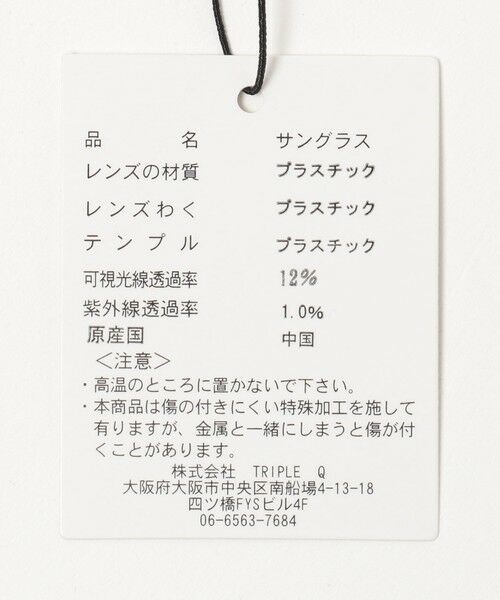 品名 サングラス
レンズの材質 プラスチック
レンズわく プラスチック
テンプル プラスチック
可視光線透過率 12%
紫外線透過率 1.0%
原産国 中国
<注意>
・高温のところに置かないで下さい。
・本商品は傷の付きにくい特殊加工を施して
有りますが、金属と一緒にしまうと傷が付
くことがあります。
株式会社 TRIPLE Q
大阪府大阪市中央区南船場4-13-18
四ツ橋FYSビル4F
06-6563-7684